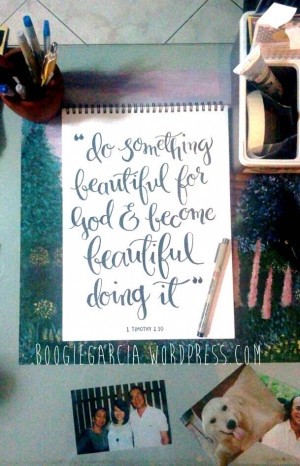 “do something
beautiful for
God & become
beautiful
doing it”
1 TIMOTHY 2:10
BOOGIEGARCIA.WORDPRESS.COM